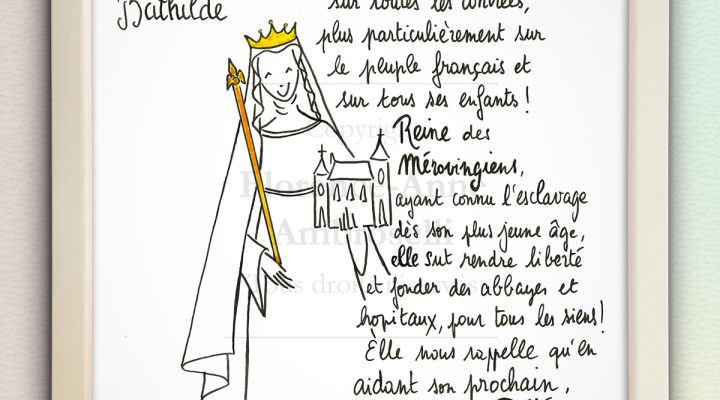 Bathilde
sur toutes les contrées,
plus particulièrement sur
le peuple français et
sur tous ses enfants !
Reine des
Mérovingiens,
ayant connu l'esclavage
dès son plus jeune âge,
elle sut rendre liberté
et fonder des abbayes et
hôpitaux, pour tous les siens !
Elle nous rappelle qu'en
aidant son prochain,
Copyright
Florence-Anne
Ambroselli
Tous droits réservés